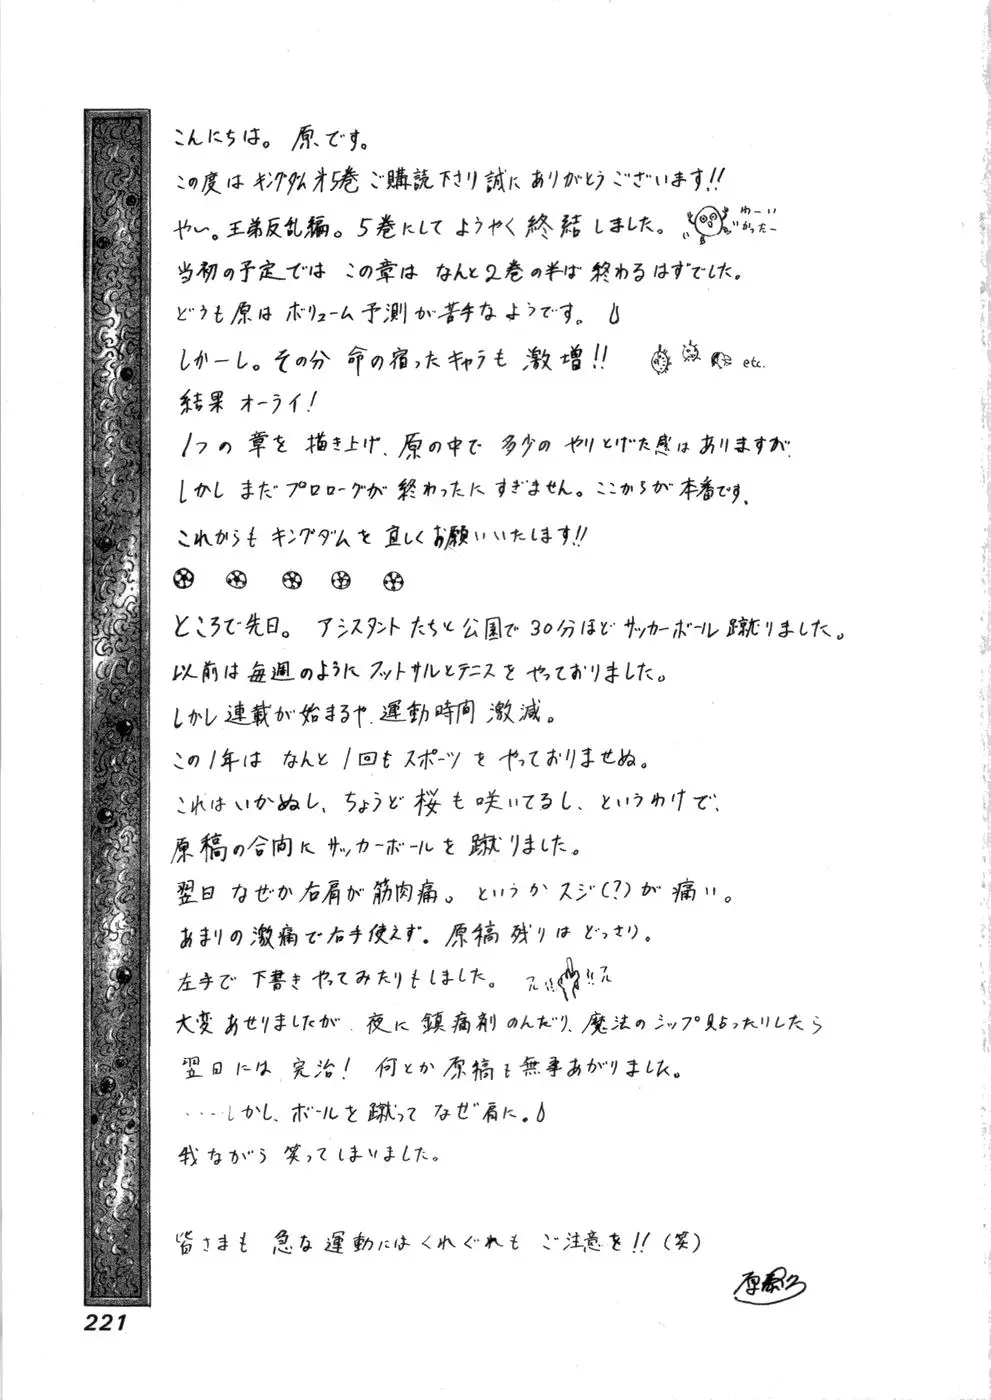 こんにちは。原です。
この度はキングダム第5巻ご購読下さり誠にありがとうございます!!
やい。王弟反乱編。5巻にしてようやく終結しました。
わーい
かったー
当初の予定ではこの章はなんと2巻の半ば終わるはずでした。
どうも原はボリューム予測が苦手なようです。
しかーし。その分命の宿ったキャラも激増!!
etc.
結果オーライ!
1つの章を描き上げ、原の中で多少のやりとげた感はありますが、
しかしまだプロローグが終わったにすぎません。ここからが本番です、
これからもキングダムを宜しくお願いいたします!!
ところで先日。アシスタントたちと公園で30分ほどサッカーボール蹴りました。
以前は毎週のようにフットサルとテニスをやっておりました。
しかし連載が始まるや、運動時間激減。
この1年はなんと1回もスポーツをやっておりませぬ。
これはいかぬし、ちょうど桜も咲いてるし、というわけで、
原稿の合間にサッカーボールを蹴りました。
翌日なぜか右肩が筋肉痛。というかスジ(?)が痛い。
あまりの激痛で右手使えず。原稿残りはどっさり。
左手で下書きやってみたりもしました。
大変あせりましたが、夜に鎮痛剤のんだり、魔法のシップ貼ったりしたら
翌日には完治!何とか原稿も無事あがりました。
……しかし、ボールを蹴ってなぜ肩に。
我ながら笑ってしまいました。
皆さまも急な運動にはくれぐれもご注意を!!(笑)
原泰久
221